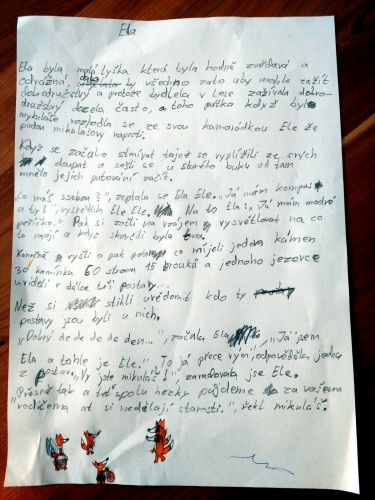 Ela
Ela byla malá lyška která byla hodně zvědavá a
odvážná, dala by všechno zato aby mohla zažít
dobrodružství a protože bydlela v lese zažívala dobro-
družství docela často, a toho pátka když bylo
mykuláše rozhodla se ze svou kamarádkou Ele že
pudou mikulášovy naproti.
Když se začalo stmívat tajně se vyplížili ze svých
doupat a sešli se u starého buku od tam
mnělo jejich putování začít.
"Co máš ssebou?", zeptala se Ela Ele. "Já mám kompas
a ty?", vysvětlih Ele Ele. Na to Ela: "Já mám modré
peříčko." Pak si začli na vzájem vysvětlovat na co
to mají a když skončili byla tma.
Konečně vyšli a pak potom co míjeli jeden kámen
30 kamínka 60 stromu 15 brouků a jednoho jezovce
urideli v dálce tři postavy...
Než si stihli uvědomit kdo ty
postavy jsou byli u nich.
"Dobrý de de de de den...", začala Ela, "Já jsem
Ela a tohle je Ele." "To já přece vým", odpověděla jedna
z postav. "Vy jste mikuláš!", zaradovala jse Ele.
"Přesně tak a teď spolu hezky pujdeme za vašema
rodičema at si nedělají starosti.", řekl mikuláš.